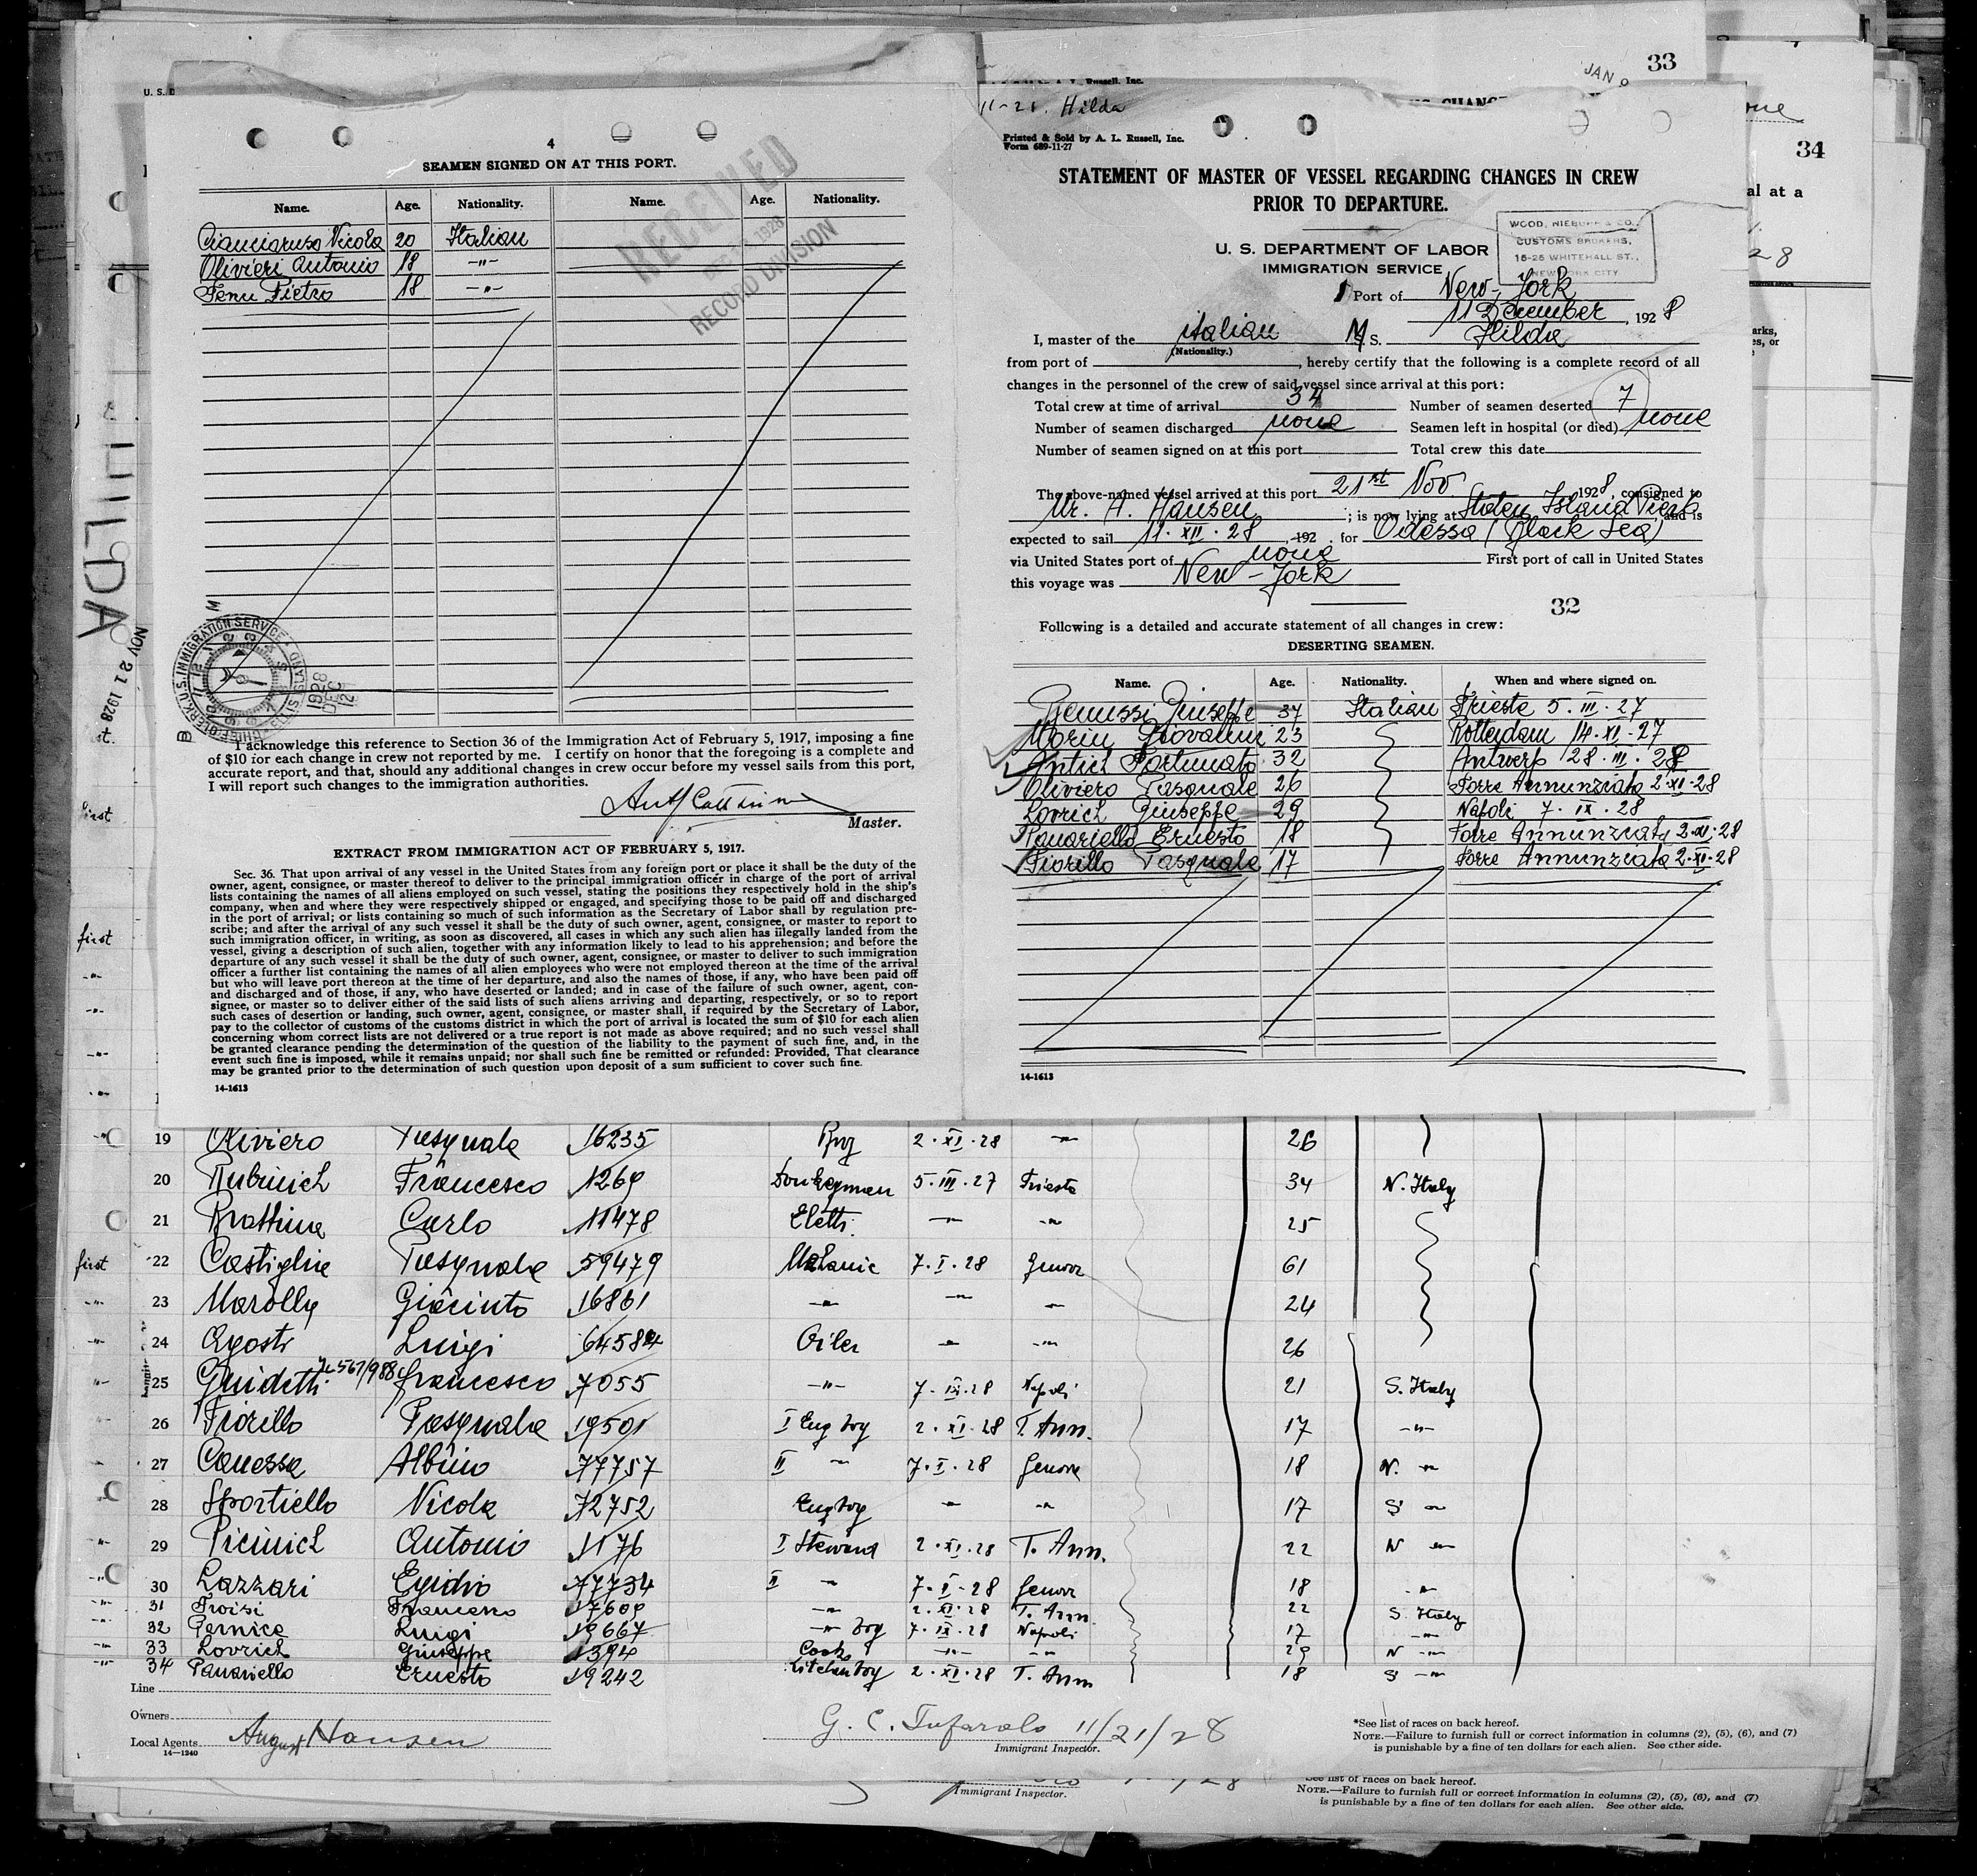 U. S. D
4
SEAMEN SIGNED ON AT THIS PORT.
Name. Age. Nationality. Name. Age. Nationality.
Cianciaruso Nicola 20 Italian
Olivieri Antonio 18 -"-
Fenu Pietro 18 -"-
RECEIVED
1928
RECORD DIVISION
CHIEF CLERK, U.S. IMMIGRATION SERVICE
ELLIS ISLAND
1928
DEC
12
I acknowledge this reference to Section 36 of the Immigration Act of February 5, 1917, imposing a fine
of $10 for each change in crew not reported by me. I certify on honor that the foregoing is a complete and
accurate report, and that, should any additional changes in crew occur before my vessel sails from this port,
I will report such changes to the immigration authorities.
Master.
EXTRACT FROM IMMIGRATION ACT OF FEBRUARY 5, 1917.
Sec. 36. That upon arrival of any vessel in the United States from any foreign port or place it shall be the duty of the
owner, agent, consignee, or master thereof to deliver to the principal immigration officer in charge of the port of arrival
lists containing the names of all aliens employed on such vessel, stating the positions they respectively hold in the ship's
company, when and where they were respectively shipped or engaged, and specifying those to be paid off and discharged
in the port of arrival; or lists containing so much of such information as the Secretary of Labor shall by regulation pre-
scribe; and after the arrival of any such vessel it shall be the duty of such owner, agent, consignee, or master to report to
such immigration officer, in writing, as soon as discovered, all cases in which any such alien has illegally landed from the
vessel, giving a description of such alien, together with any information likely to lead to his apprehension; and before the
departure of any such vessel it shall be the duty of such owner, agent, consignee, or master to deliver to such immigration
officer a further list containing the names of all alien employees who were not employed thereon at the time of the arrival
but who will leave port thereon at the time of her departure, and also the names of those, if any, who have been paid off
and discharged and of those, if any, who have deserted or landed; and in case of the failure of such owner, agent, con-
signee, or master so to deliver either of the said lists of such aliens arriving and departing, respectively, or so to report
such cases of desertion or landing, such owner, agent, consignee, or master shall, if required by the Secretary of Labor,
pay to the collector of customs of the customs district in which the port of arrival is located the sum of $10 for each alien
concerning whom correct lists are not delivered or a true report is not made as above required; and no such vessel shall
be granted clearance pending the determination of the question of the liability to the payment of such fine, and, in the
event such fine is imposed, while it remains unpaid; nor shall such fine be remitted or refunded: Provided, That clearance
may be granted prior to the determination of such question upon deposit of a sum sufficient to cover such fine.
14-1613
HILDA
NOV 21 1928
first
first
11-21. Hilda
33
JAN
34
al at a
28
Printed & Sold by A. L. Russell, Inc.
Form 689-11-27
STATEMENT OF MASTER OF VESSEL REGARDING CHANGES IN CREW
PRIOR TO DEPARTURE.
U. S. DEPARTMENT OF LABOR
IMMIGRATION SERVICE
WOOD, NIEBUHR & CO.,
CUSTOMS BROKERS,
15-25 WHITEHALL ST.,
NEW YORK CITY
Port of New-York
11 December, 1928
I, master of the italian M/S. Hilda
(Nationality.)
from port of , hereby certify that the following is a complete record of all
changes in the personnel of the crew of said vessel since arrival at this port:
Total crew at time of arrival 34 Number of seamen deserted 7
Number of seamen discharged none Seamen left in hospital (or died) none
Number of seamen signed on at this port Total crew this date
The above-named vessel arrived at this port 21st Nov. 1928, consigned to
Mr. A. Hansen ; is now lying at Staten Island Pier and is
expected to sail 11.XII.28, 192 . for Odessa (Black Sea)
via United States port of none First port of call in United States
this voyage was New-York
32
Following is a detailed and accurate statement of all changes in crew:
DESERTING SEAMEN.
Name. Age. Nationality. When and where signed on.
Giuseppe 37 Italian Trieste 5.III.27
Morin Giovanni 23 Rotterdam 14.XI.27
Antich Fortunato 32 Antwerp 28.III.28
Oliviero Pasquale 26 Torre Annunziata 2.XI.28
Lovrich Giuseppe 29 Napoli 7.IX.28
Panariello Ernesto 18 Torre Annunziata 2.XI.28
Fiorillo Pasquale 17 Torre Annunziata 2.XI.28
14-1613
19 Oliviero Pasquale 16235 2.XI.28 -"- 26
20 Rubinich Francesco 1269 Donkeyman 5.III.27 Trieste 34 N. Italy
21 Brattina Carlo 11478 Elettr. -"- -"- 25
first 22 Castiglia Pasquale 59479 Mechanic 7.I.28 Genova 61
-"- 23 Marolly Giacinto 16861 -"- -"- -"- 24
-"- 24 Agosti Luigi 64584 Oiler -"- -"- 26
-"- 25 Guidetti francesco 7055 -"- 7.IX.28 Napoli 21 S. Italy
-"- 26 Fiorillo Pasquale 19501 I Eng boy 2.XI.28 T. Ann. 17 -"-
-"- 27 Canessa Albino 77757 II -"- 7.I.28 Genova 18 N. -"-
28 Sportiello Nicola 72752 Eng boy -"- -"- 17 S -"-
-"- 29 Picinich Antonio 1176 I Steward 2.XI.28 T. Ann. 22 N -"-
-"- 30 Lazzari Egidio 77734 II -"- 7.I.28 Genova 18 -"-
-"- 31 Troisi Francesco 17609 -"- 2.XI.28 T. Ann. 22 S. Italy
-"- 32 Pernice Luigi 19667 -"- boy 7.IX.28 Napoli 17 -"-
-"- 33 Lovrich Giuseppe 1394 Cook -"- -"- 29 N -"-
-"- 34 Panariello Ernesto 19242 Kitchen boy 2.XI.28 T. Ann 18 S -"-
Line
Owners
Local Agents August Hansen
14—1240
G. C. Tufarolo 11/21/28
Immigrant Inspector.
*See list of races on back hereof.
NOTE.—Failure to furnish full or correct information in columns (2), (5), (6), and (7)
is punishable by a fine of ten dollars for each alien. See other side.
Immigrant Inspector.
See list of races on back hereof.
NOTE.—Failure to furnish full or correct information in columns (2), (5), (6), and (7)
is punishable by a fine of ten dollars for each alien. See other side.